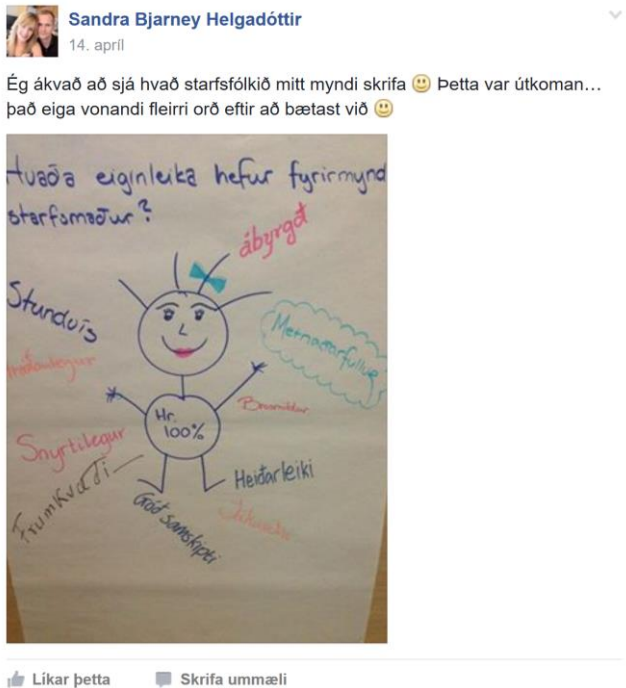 Sandra Bjarney Helgadóttir
14. apríl
Ég ákvað að sjá hvað starfsfólkið mitt myndi skrifa 🙂 Þetta var útkoman…
það eiga vonandi fleirri orð eftir að bætast við 🙂
Hvaða eiginleika hefur fyrirmynd
starfsmaður?
ábyrgð
Stundvís
Metnaðarfullur
Hr.
100%
Snyrtilegur
Frumkvæði
Góð samskipti
Heiðarleiki
Líkar þetta
Skrifa ummæli